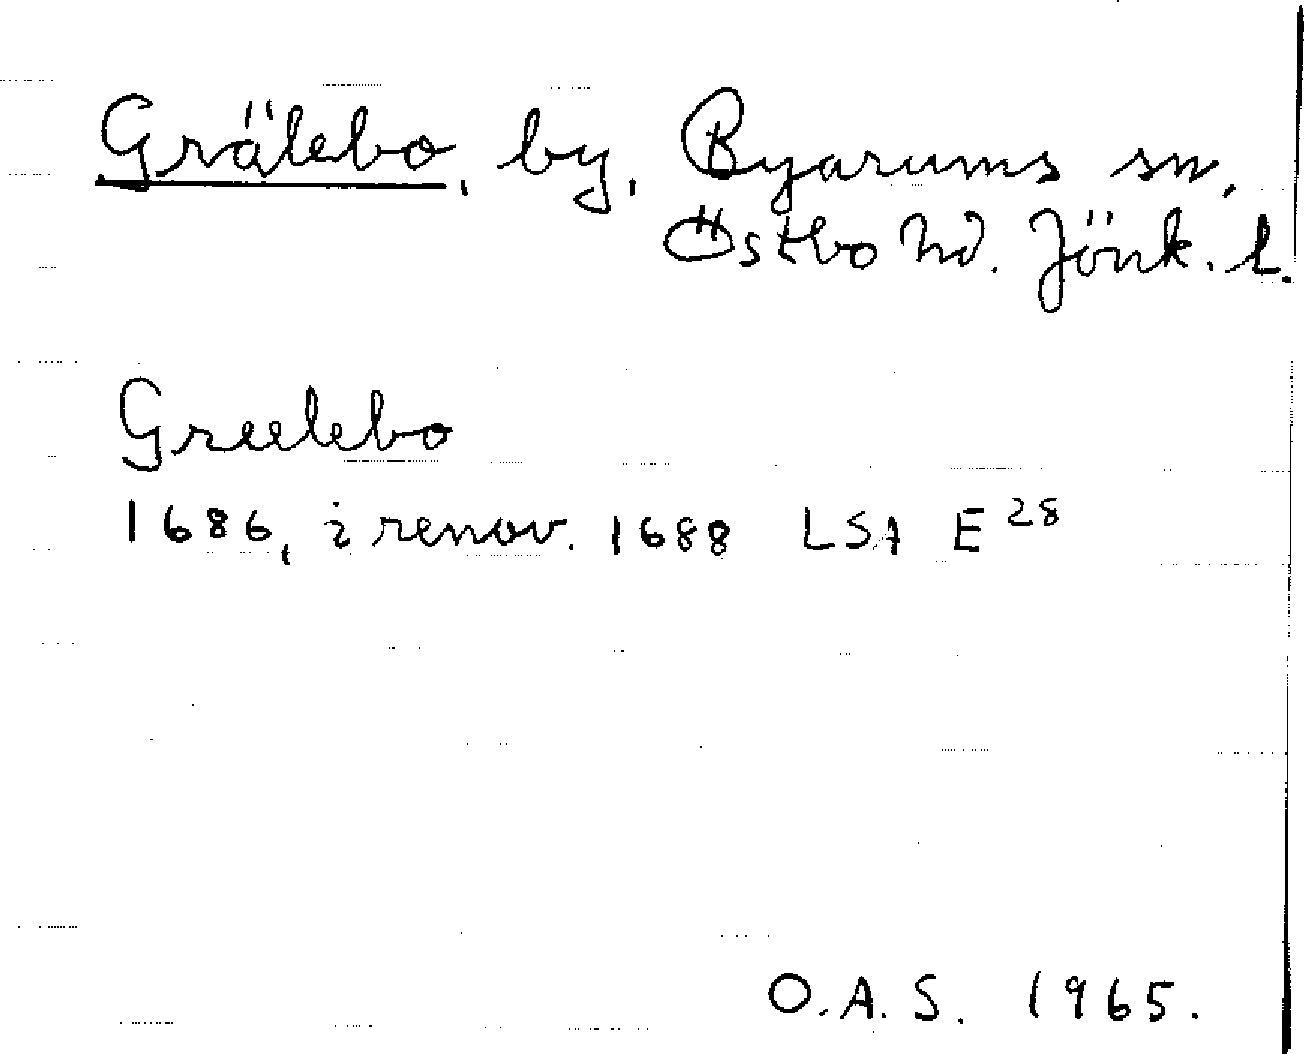 Grälebo, by, Byarums sn,
Östbo hd. Jönk. l.
Greelebo
1686, i renov. 1688 LSA E 28
O.A.S. 1965.